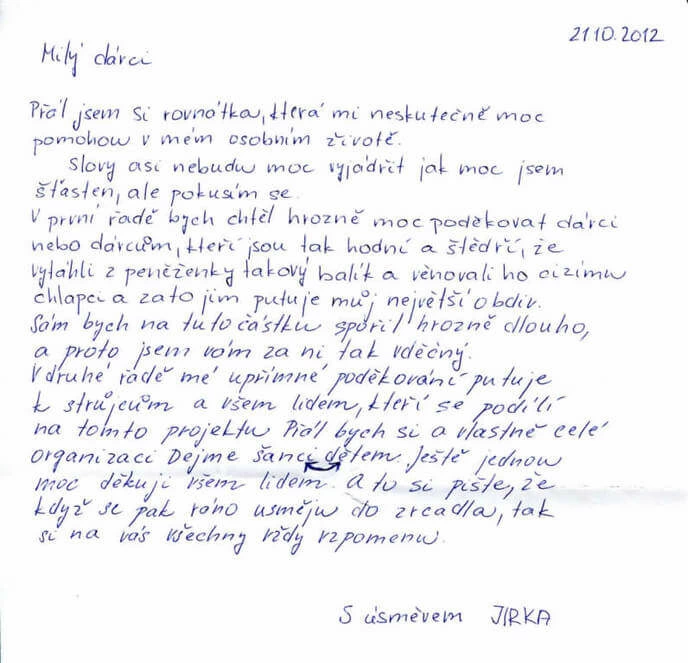 21.10.2012
Milý dárci
Přál jsem si rovnátka, která mi neskutečně moc
pomohou v mém osobním životě.
Slovy asi nebudu moc vyjádřit jak moc jsem
šťasten, ale pokusím se.
V první řadě bych chtěl hrozně moc poděkovat dárci
nebo dárcům, kteří jsou tak hodní a štědří, že
vytáhli z peněženky takový balík a věnovali ho cizímu
chlapci a zato jim putuje můj největší obdiv.
Sám bych na tuto částku spořil hrozně dlouho,
a proto jsem vám za ni tak vděčný.
V druhé řadě mé upřímné poděkování putuje
k strůjcům a všem lidem, kteří se podílí
na tomto projektu Přál bych si a vlastně celé
organizaci Dejme šanci dětem. Ještě jednou
moc děkuji všem lidem. a tu si pište, že
když se pak ráno usměju do zrcadla, tak
si na vás všechny vždy vzpomenu.
S úsměvem JIRKA